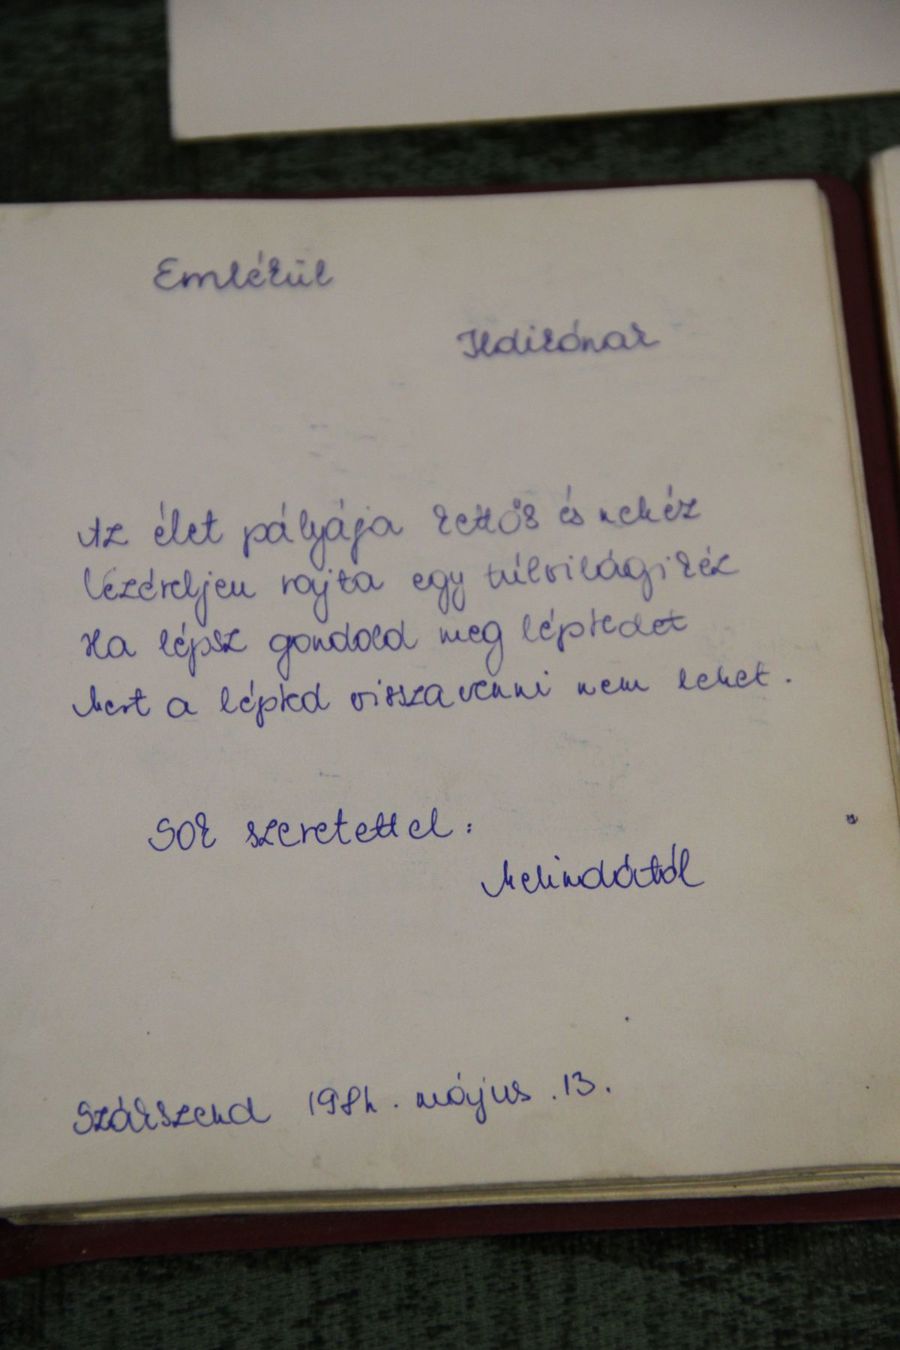 Emlékül
Ildikónak
Az élet pályája kettős és nehéz
Vezéreljen rajta egy túlvilági kéz
Ha lépsz gondold meg lépted et
Mert a lépted visszavenni nem lehet.
Sok szeretettel:
Melindától
Szákszend 1984. május .13.